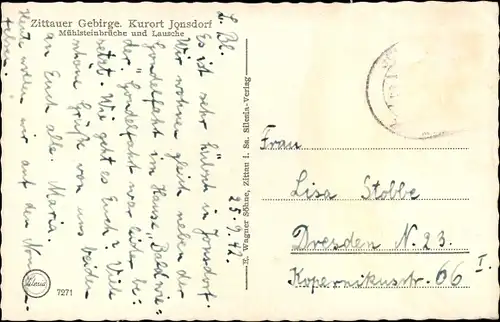 Zittauer Gebirge. Kurort Jonsdorf
Mühlsteinbrüche und Lausche
25.9.42.
L. Bl.
Es ist sehr hübsch in Jonsdorf.
Wir wohnen gleich neben der
Gondelfahrt im Haus „Baldwie-
der“. Gondelfahrt war leider be-
setzt. Wie geht es Euch? Viele
schöne Grüße von uns beiden
an Euch alle. Maria.
Heute wollen wir auf den Nonnen-
felsen.
E. Wagner Söhne, Zittau i. Sa. Silesia-Verlag
Frau
Lisa Stobbe
Dresden N. 23.
Kopernikusstr. 66 I.
Silesia
7271